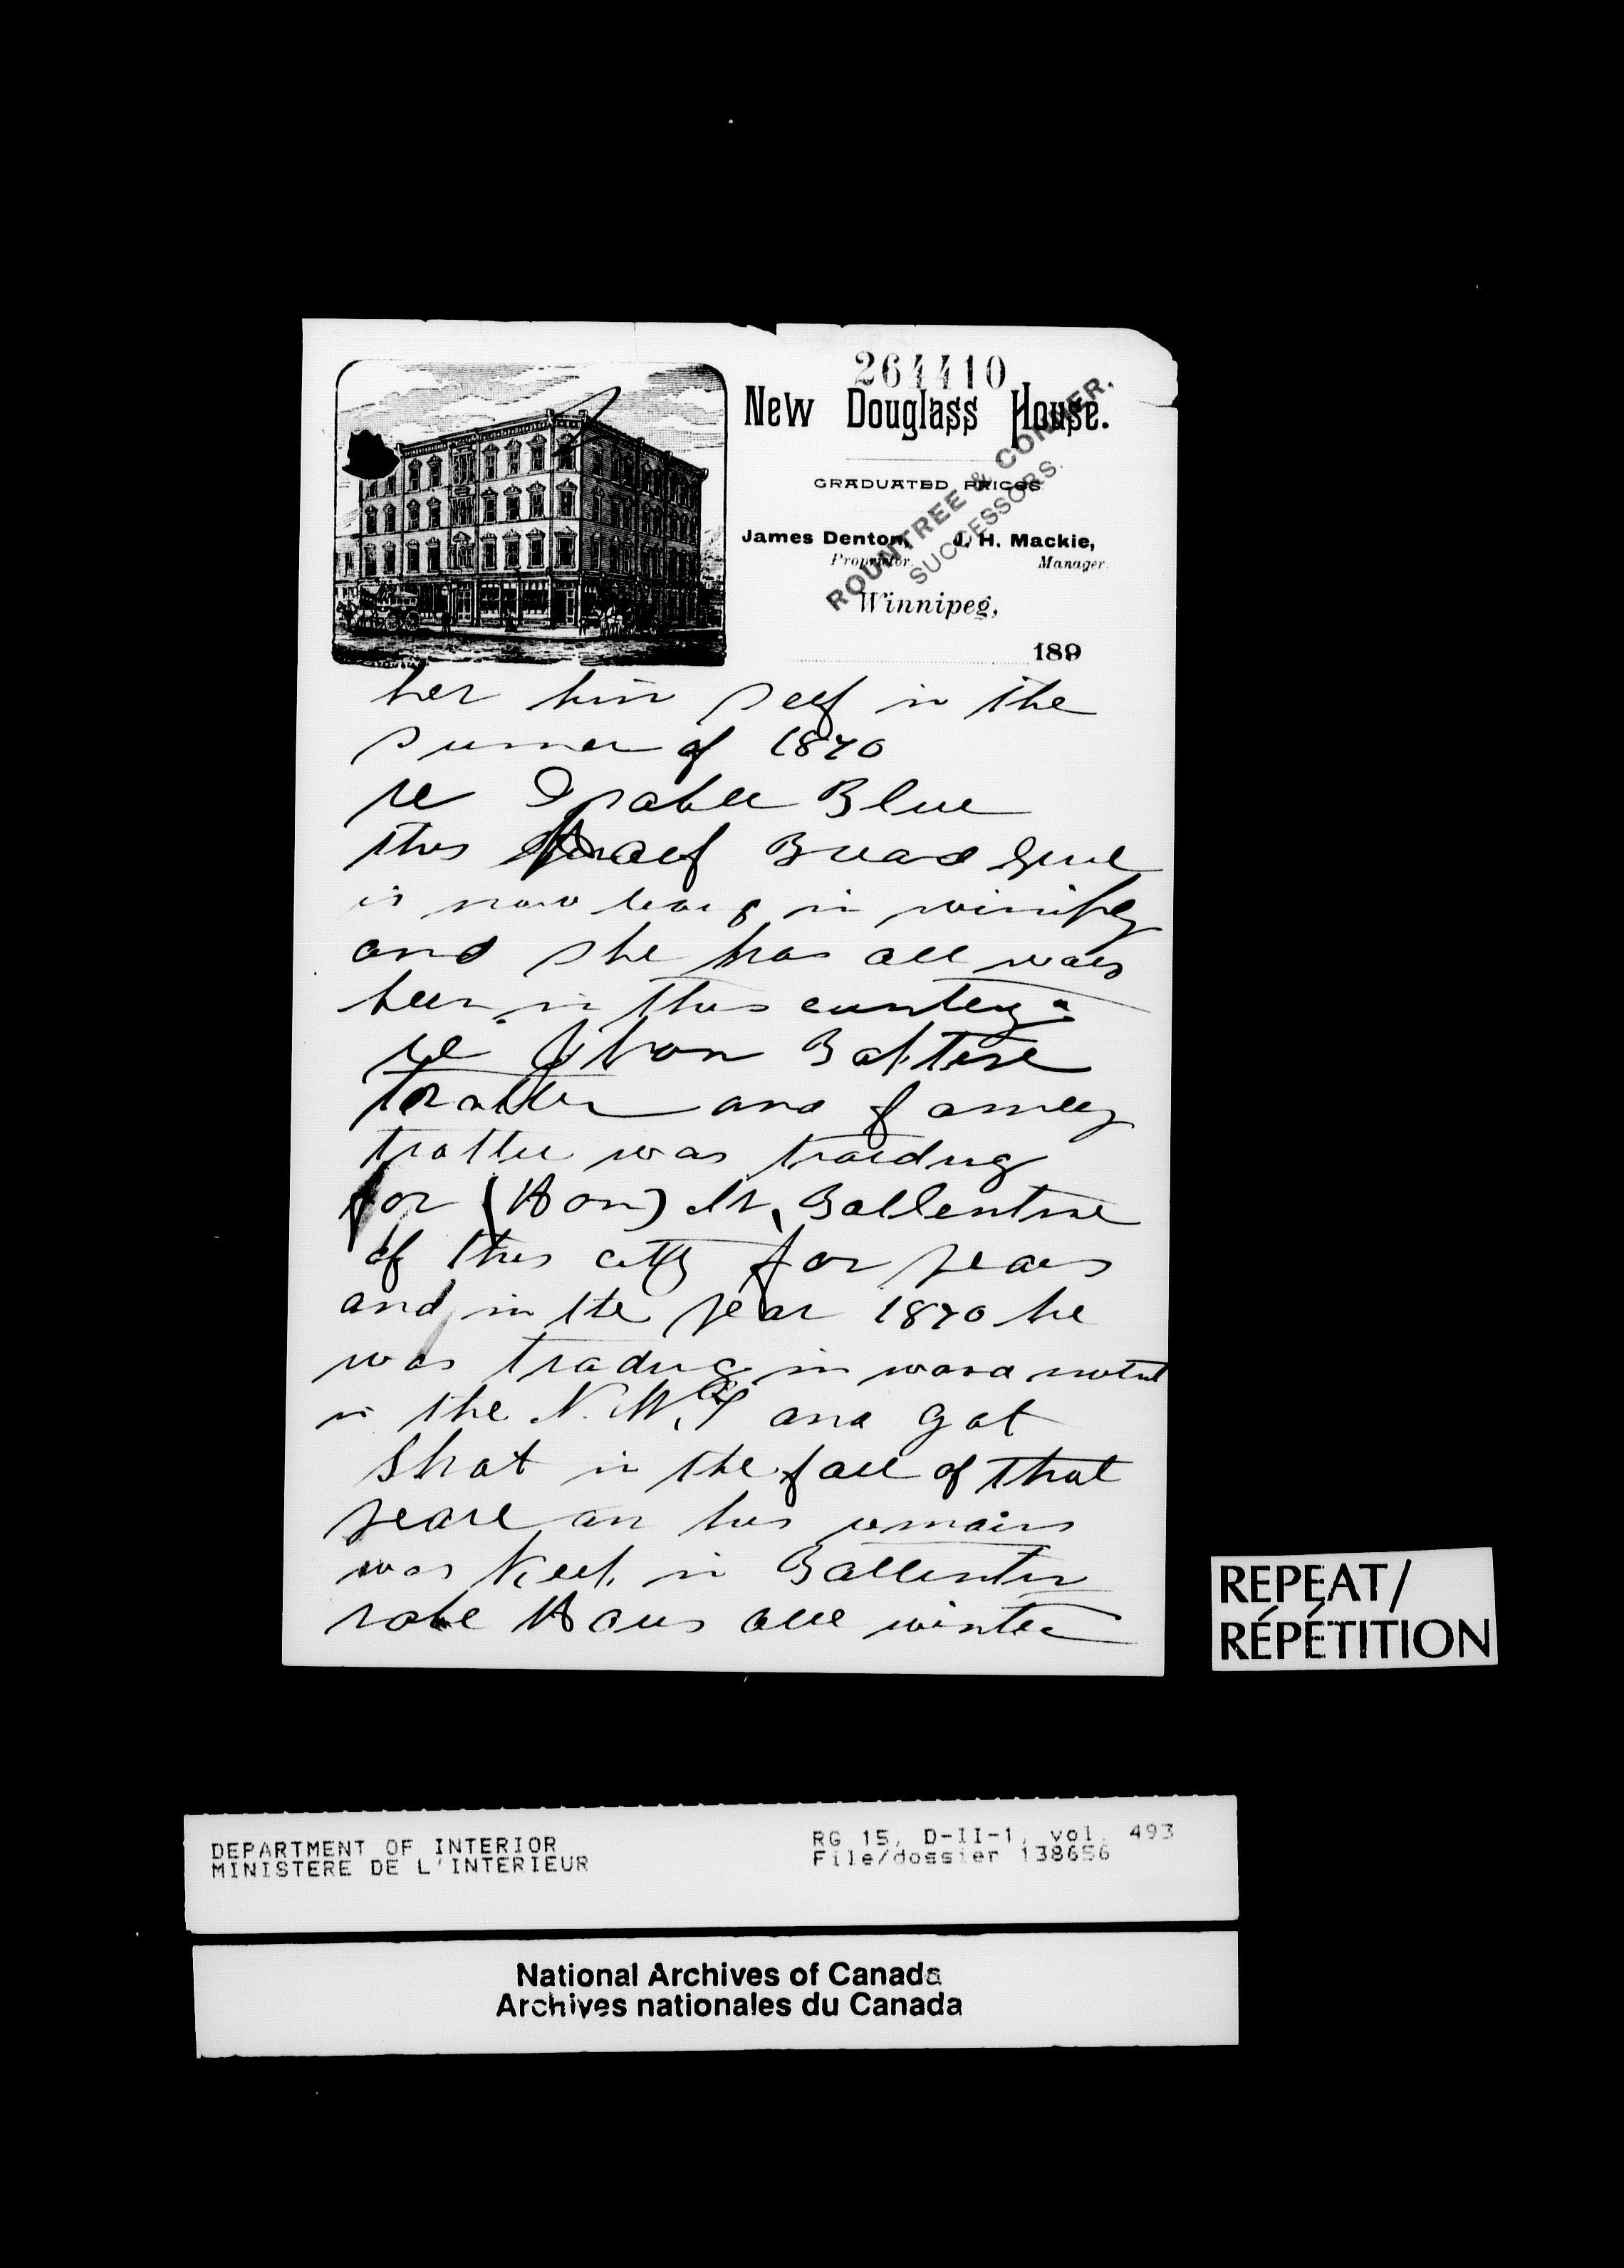 264410
New Douglass House.
GRADUATED PRICES
ROUNTREE & CONNER.
SUCCESSORS.
James Denton, J. H. Mackie,
Proprietor. Manager.
Winnipeg,
189
her him self in the
sumer of 1870
re Isabell Blue
this half Bread Girl
is now in
and she has all ways
been in this
re Baptese
Trotter and
trotter was traiding
for (Hon) Mr. Ballentine
of this city for years
and in the year 1870 he
was trading in
in the N. W. T and got
Shot in the fall of that
yeare an his remains
was Keep in Ballentin
robe Hous all winter
REPEAT/
RÉPÉTITION
DEPARTMENT OF INTERIOR RG 15, D-II-1, vol. 493
MINISTERE DE L'INTERIEUR File/dossier 138656
National Archives of Canada
Archives nationales du Canada